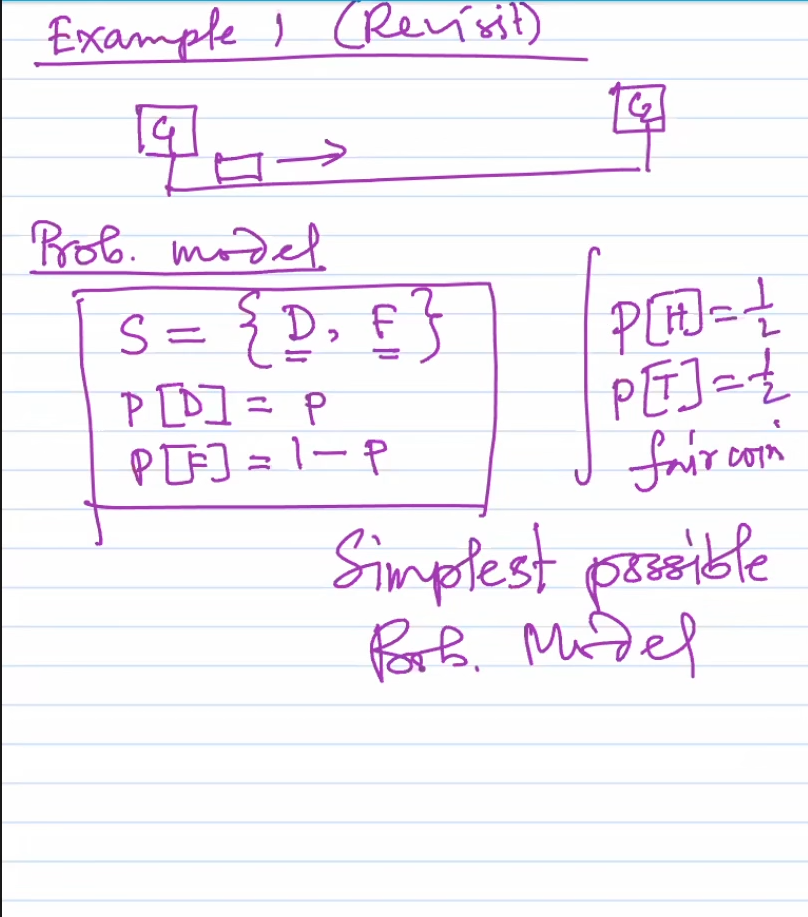 Example 1 (Revisit)
C1
C2
Prob. model
S = {D, F}
P[D] = p
P[F] = 1 - p
P[H] = 1/2
P[T] = 1/2
fair coin
Simplest possible
Prob. Model